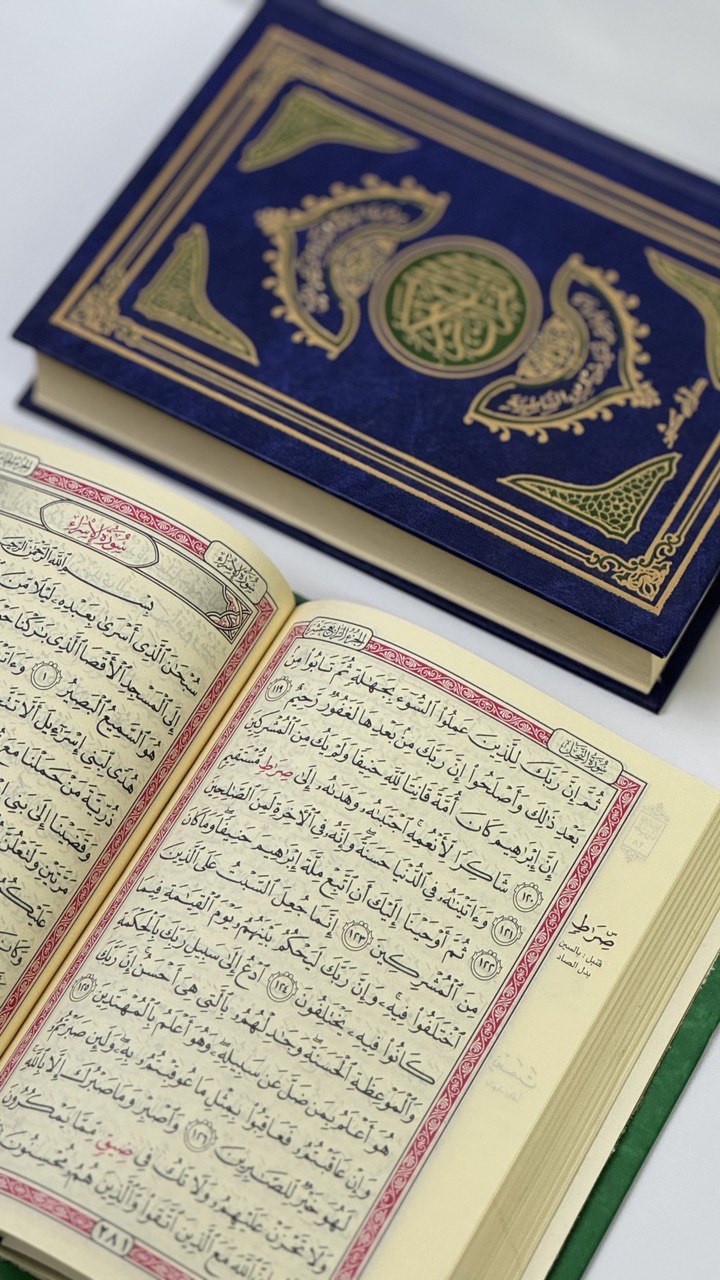 الجُزءُ الرَّابِعَ عَشَرَ
سُورَةُ النَّحْلِ
ثُمَّ إِنَّ رَبَّكَ لِلَّذِينَ عَمِلُوا۟ ٱلسُّوٓءَ بِجَهَٰلَةٍ ثُمَّ تَابُوا۟ مِنۢ
بَعْدِ ذَٰلِكَ وَأَصْلَحُوٓا۟ إِنَّ رَبَّكَ مِنۢ بَعْدِهَا لَغَفُورٌ رَّحِيمٌ ١١٩
إِنَّ إِبْرَٰهِيمَ كَانَ أُمَّةً قَانِتًا لِّلَّهِ حَنِيفًا وَلَمْ يَكُ مِنَ ٱلْمُشْرِكِينَ
١٢٠ شَاكِرًا لِّأَنْعُمِهِۦ ٱجْتَبَىٰهُۥ وَهَدَىٰهُۥٓ إِلَىٰ صِرَٰطٍ مُّسْتَقِيمٍ
١٢١ وَءَاتَيْنَٰهُۥ فِي ٱلدُّنْيَا حَسَنَةً وَإِنَّهُۥ فِي ٱلْأَخِرَةِ لَمِنَ ٱلصَّٰلِحِينَ
١٢٢ ثُمَّ أَوْحَيْنَآ إِلَيْكَ أَنِ ٱتَّبِعْ مِلَّةَ إِبْرَٰهِيمَ حَنِيفًا وَمَا كَانَ
مِنَ ٱلْمُشْرِكِينَ ١٢٣ إِنَّمَا جُعِلَ ٱلسَّبْتُ عَلَى ٱلَّذِينَ
ٱخْتَلَفُوا۟ فِيهِۦ وَإِنَّ رَبَّكَ لَيَحْكُمُ بَيْنَهُمُۥ يَوْمَ ٱلْقِيَٰمَةِ فِيمَا
كَانُوا۟ فِيهِۦ يَخْتَلِفُونَ ١٢٤ ٱدْعُ إِلَىٰ سَبِيلِ رَبِّكَ بِٱلْحِكْمَةِ
وَٱلْمَوْعِظَةِ ٱلْحَسَنَةِ وَجَٰدِلْهُمُۥ بِٱلَّتِي هِيَ أَحْسَنُ إِنَّ رَبَّكَ
هُوَ أَعْلَمُ بِمَن ضَلَّ عَن سَبِيلِهِۦ وَهُوَ أَعْلَمُ بِٱلْمُهْتَدِينَ ١٢٥
وَإِنْ عَاقَبْتُمُۥ فَعَاقِبُوا۟ بِمِثْلِ مَا عُوقِبْتُمُۥ بِهِۦ وَلَئِن صَبَرْتُمُۥ
لَهُوَ خَيْرٌ لِّلصَّٰبِرِينَ ١٢٦ وَٱصْبِرْ وَمَا صَبْرُكَ إِلَّا بِٱللَّهِ
وَلَا تَحْزَنْ عَلَيْهِمُۥ وَلَا تَكُ فِي ضِيقٍ مِّمَّا يَمْكُرُونَ
ٱللَّهَ مَعَ ٱلَّذِينَ ٱتَّقَوا۟ وَّٱلَّذِينَ هُمُۥ مُحْسِنُونَ
٢٨١
صِرَٰطٍ
قنبل: بالسين
بدل الصاد
سُورَةُ الإِسْرَاءِ
سُورَةُ الإِسْرَاءِ
بِسْمِ ٱللَّهِ ٱلرَّحْمَٰنِ ٱلرَّحِيمِ
سُبْحَٰنَ ٱلَّذِيٓ أَسْرَىٰ بِعَبْدِهِۦ لَيْلًا مِّنَ
إِلَى ٱلْمَسْجِدِ ٱلْأَقْصَا ٱلَّذِي بَٰرَكْنَا
هُوَ ٱلسَّمِيعُ ٱلْبَصِيرُ ١
هُدًى لِّبَنِيٓ إِسْرَٰٓءِيلَ أَلَّا
ذُرِّيَّةَ مَنْ حَمَلْنَا مَعَ
وَقَضَيْنَآ إِلَىٰ بَنِيٓ
مَرَّتَيْنِ وَلَتَعْلُنَّ
عَلَيْكُمُ
وَكَانَ